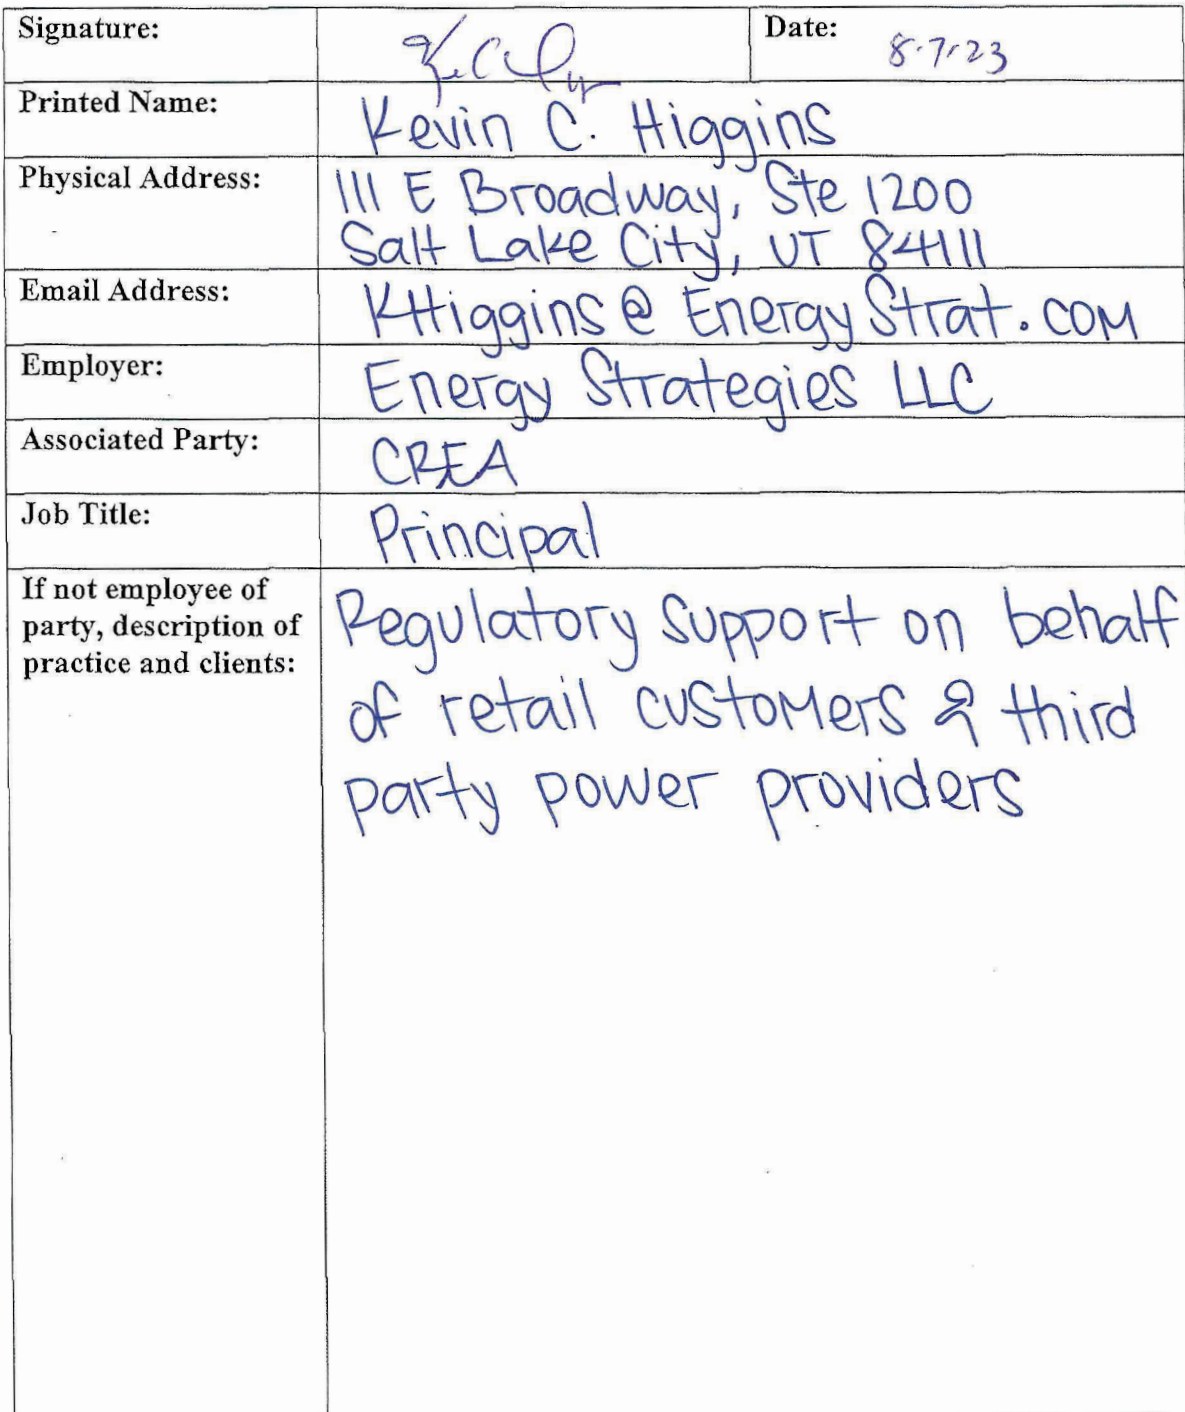 Signature:
Date: 8-7-23
Printed Name: Kevin C. Higgins
Physical Address: 111 E Broadway, Ste 1200
Salt Lake City, UT 84111
Email Address: KHiggins@EnergyStrat.com
Employer: Energy Strategies LLC
Associated Party: CREA
Job Title: Principal
If not employee of
party, description of
practice and clients:
Regulatory Support on behalf
of retail customers & third
party power providers